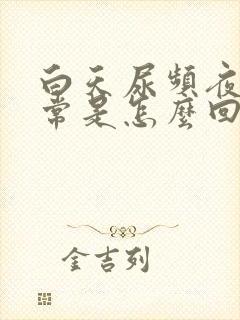 白天尿頻夜
常是怎麼回
金吉列